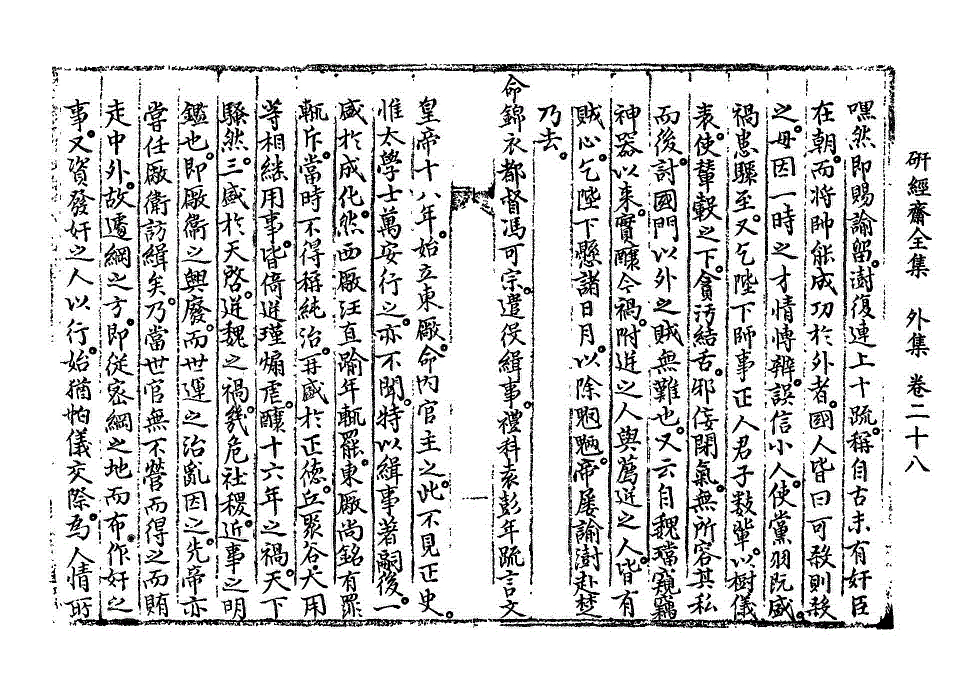 研經齋全集 外集 卷二十八
嘿然卽賜諭留澍復連上十疏稱自古未有奸臣
在朝而將帥能成功於外者國人皆曰可殺則殺
之毋因一時之才情博辨誤信小人使黨羽旣盛
禍患驟至又乞陛下師事正人君子數輩以樹儀
表使輦轂之下貪汚結舌邪佞閉氣無所容其私
而後討國門以外之賊無難也又云自魏璫窺竊
神器以來實釀今禍附逆之人與薦逆之人皆有
賊心乞陛下懸諸日月以除魍魎帝屢諭澍赴楚
乃去
命錦衣都督馮可宗遣役緝事禮科袁彭年疏言文
皇帝十八年始立東廠命內官主之此不見正史
惟太學士萬安行之亦不聞特以緝事著嗣後一
盛於成化然西廠汪直踰年輒罷東廠尙銘有罪
輒斥當時不得稱純治再盛於正德丘聚谷大用
等相繼用事皆倚逆瑾煽虐釀十六年之禍天下
騷然三盛於天啓逆魏之禍幾危社稷近事之明
鑑也卽廠衛之興廢而世運之治亂因之先帝亦
嘗任廠衛訪緝矣乃當世官無不營而得之而賄
走中外故遞綱之方卽從密網之地而布作奸之
事又資發奸之人以行始猶帕儀交際爲人情所